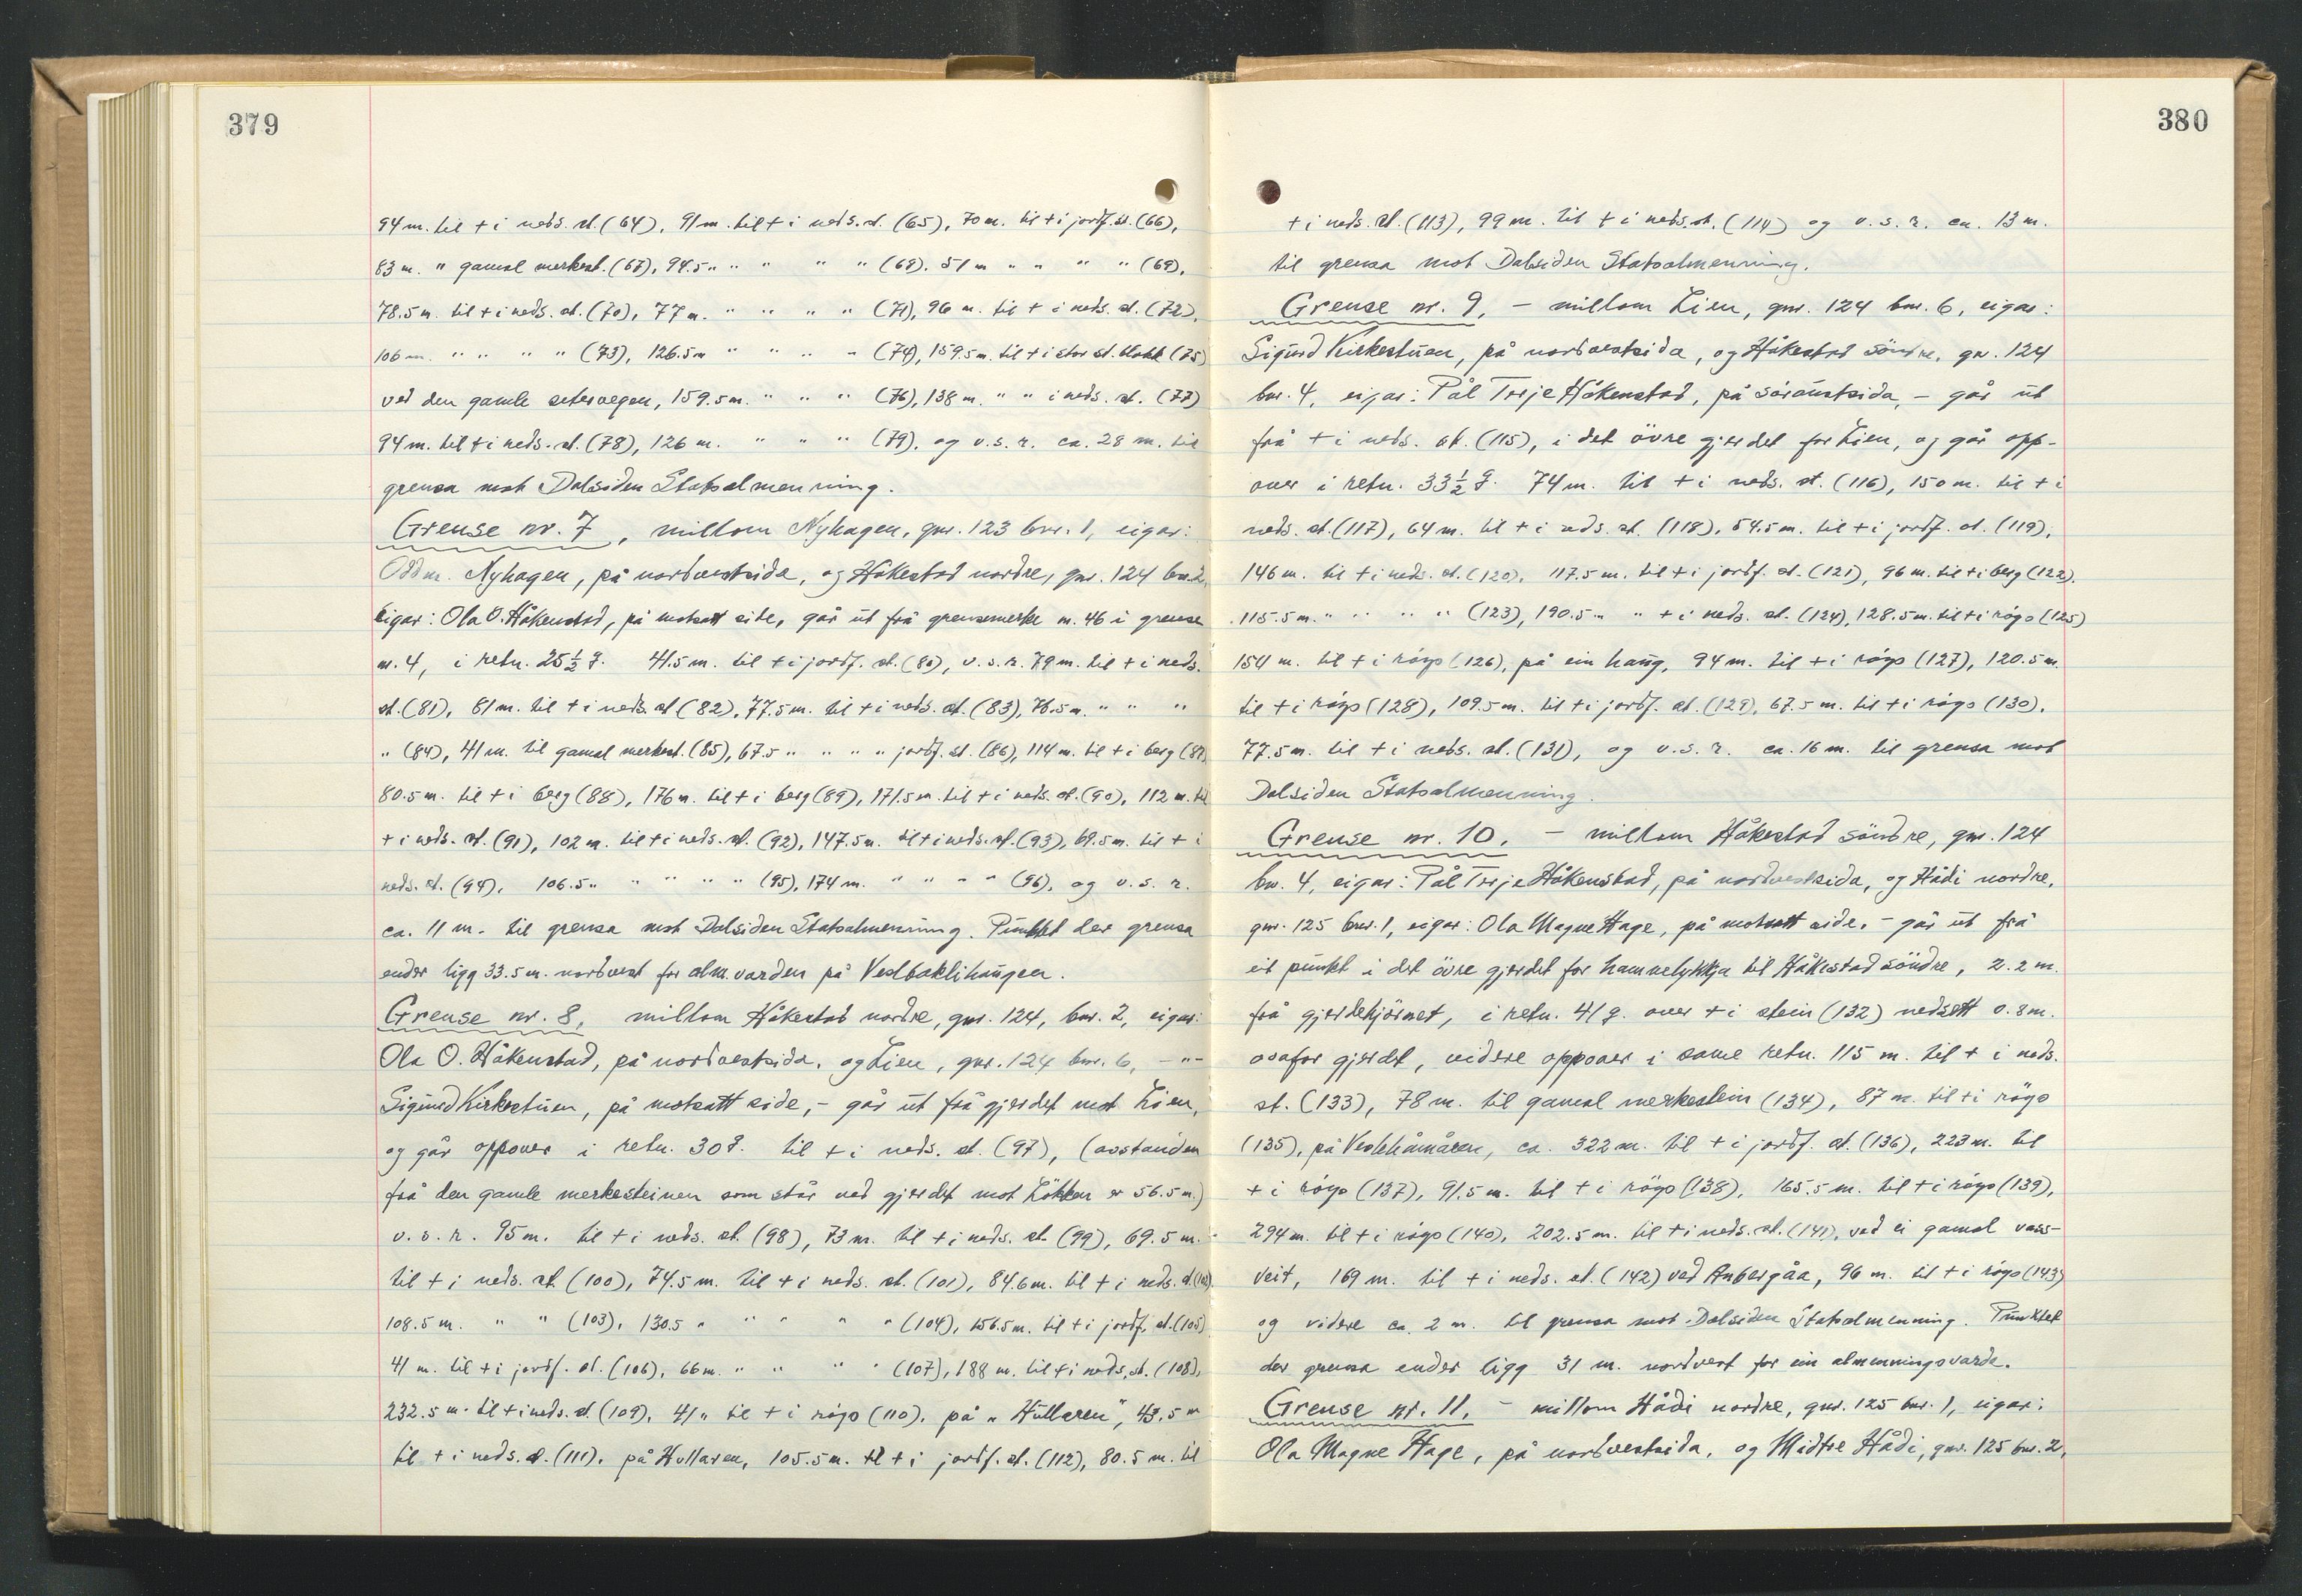 379
94 m. til + i neds. st. (64), 91 m. til + i neds. st. (65), 70 m. til + i jordf. st. (66),
83 m. " gamal merkest. (67), 94.5 " " " " " (68). 51 m " " " " (69),
78.5 m. til + i neds. st. (70), 77 m. " " " " (71), 96 m. til + i neds. st. (72),
106 m. " " " " (73), 126.5 m " " " " (74), 159.5 m. til + i stor st. blokk (75)
ved den gamle setervegen, 159.5 m. " " " (76), 138 m. " " i neds. st. (77)
94 m. til + i neds. st. (78), 126 m. " " " (79). og v.s.r. ca. 28 m. til
grensa mot Dalsiden Statsalmenning.
Grense nr. 7, millom Nyhagen, gnr. 123 bnr. 1, eigar:
Oddm. Nyhagen, på nordvestsida, og Håkestad nordre, gnr. 124 bnr. 2,
eigar: Ola O. Håkenstad, på motsatt side, går ut frå grensemerke nr. 46 i grense
nr. 4, i retn. 25 1/2 g. 41.5 m. til + i jordf. st. (80), v.s.r. 79 m. til + i neds.
st. (81), 81 m. til + i neds. st (82), 77.5 m. til + i neds. st. (83), 76.5 m. " " "
" (84), 41 m. til gamal merkest. (85), 67.5 " " " " jordf. st. (86), 114 m. til + i berg (87)
80.5 m. til + i berg (88), 176 m. til + i berg (89), 171.5 m. til + i neds. st. (90), 112 m. til
+ i neds. st. (91), 102 m. til + i neds. st. (92), 147.5 m. til + i neds. st. (93), 69.5 m. til + i
neds. st. (94), 106.5 " " " " " (95), 174 m. " " " " (96), og v.s.r.
ca. 11 m. til grensa mot Dalsiden Statsalmenning. Punktet der grensa
ender ligg 33.5 m. nordvest for alm.varden på Veslbaklihaugen.
Grense nr. 8, millom Håkestad nordre, gnr. 124, bnr. 2, eigar:
Ola O. Håkenstad, på nordvestsida, og Lien, gnr. 124 bnr. 6, - " -
Sigurd Kirkestuen, på motsatt side, - går ut frå gjerdet mot Lien,
og går oppover i retn. 30 g. til + i neds. st. (97), (avstanden
frå den gamle merkesteinen som står ved gjerdet mot Løkken er 56.5 m.)
v.s.r. 95 m. til + i neds. st. (98), 73 m. til + i neds. st. (99), 69.5 m.
til + i neds. st. (100), 74.5 m. til + i neds. st. (101), 84.6 m. til + i neds. st. (102)
108.5 m. " " (103), 130.5 " " " " " (104), 156.5 m. til + i jordf. st. (105)
41 m. til + i jordf. st. (106), 66 m. " " " " (107), 188 m. til + i neds. st. (108),
232.5 m. til + i neds. st. (109), 41 " til + i røgs (110). på "Hullaren", 43.5 m
til + i neds. st. (111). på Hullaren, 105.5 m. til + i jordf. st. (112), 80.5 m. til
380
+ i neds. st. (113), 99 m. til + i neds. st. (114) og v.s.r. ca. 13 m.
til grensa mot Dalsiden Statsalmenning.
Grense nr. 9, - millom Lien, gnr. 124 bnr. 6, eigar:
Sigurd Kirkestuen, på nordvestsida, og Håkestad söndre, gnr. 124
bnr. 4, eigar: Pål Terje Håkenstad, på søraustsida, - går ut
frå + i neds. st. (115), i det övre gjerdet for Lien, og går opp-
over i retn. 33 1/2 g. 74 m. til + i neds. st. (116), 150 m. til + i
neds. st. (117), 64 m. til + i neds. st. (118), 54.5 m. til + i jordf. st. (119),
146 m. til + i neds. st. (120), 117.5 m. til + i jordf. st. (121), 96 m. til + i berg (122),
115.5 m. " " " " (123), 190.5 " " + i neds. st. (124), 128.5 m. til + i røgs (125)
154 m. til + i røgs (126), på ein haug, 94 m. til + i røgs (127), 120.5 m.
til + i røgs (128), 109.5 m. til + i jordf. st. (129), 67.5 m. til + i røgs (130),
77.5 m. til + i neds. st. (131), og v.s.r. ca. 16 m. til grensa mot
Dalsiden Statsalmenning.
Grense nr. 10, - millom Håkestad söndre, gnr. 124
bnr. 4, eigar: Pål Terje Håkenstad, på nordvestsida, og Hådi nordre,
gnr. 125 bnr. 1, eigar: Ola Magne Hage, på motsatt side, - går ut frå
eit punkt i det övre gjerdet for hamnelykkja til Håkestad söndre, 2.2 m.
frå gjerdehjörnet, i retn. 41 g. over + i stein (132) nedsett 0.8 m.
ovafor gjerdet, vidare oppover i same retn. 115 m. til + i neds.
st. (133), 78 m. til gamal merkestein (134), 87 m. til + i røgs
(135), på Veslehåmåren, ca. 322 m. til + i jordf. st. (136), 223 m. til
+ i røgs (137), 91.5 m. til + i røgs (138), 165.5 m. til + i røgs (139),
294 m. til + i røgs (140), 202.5 m. til + i neds. st. (141), ved ei gamal vass-
veit, 169 m. til + i neds. st. (142) ved Anbergåa, 96 m. til + i røgs (143)
og videre ca. 2 m. til grensa mot Dalsiden Statsalmenning. Punktet
der grensa ender ligg 31 m. nordvest for ein almenningsvarde.
Grense nr. 11, - millom Hådi nordre, gnr. 125 bnr. 1, eigar:
Ola Magne Hage, på nordvestsida, og Midtre Hådi, gnr. 125 bnr. 2,